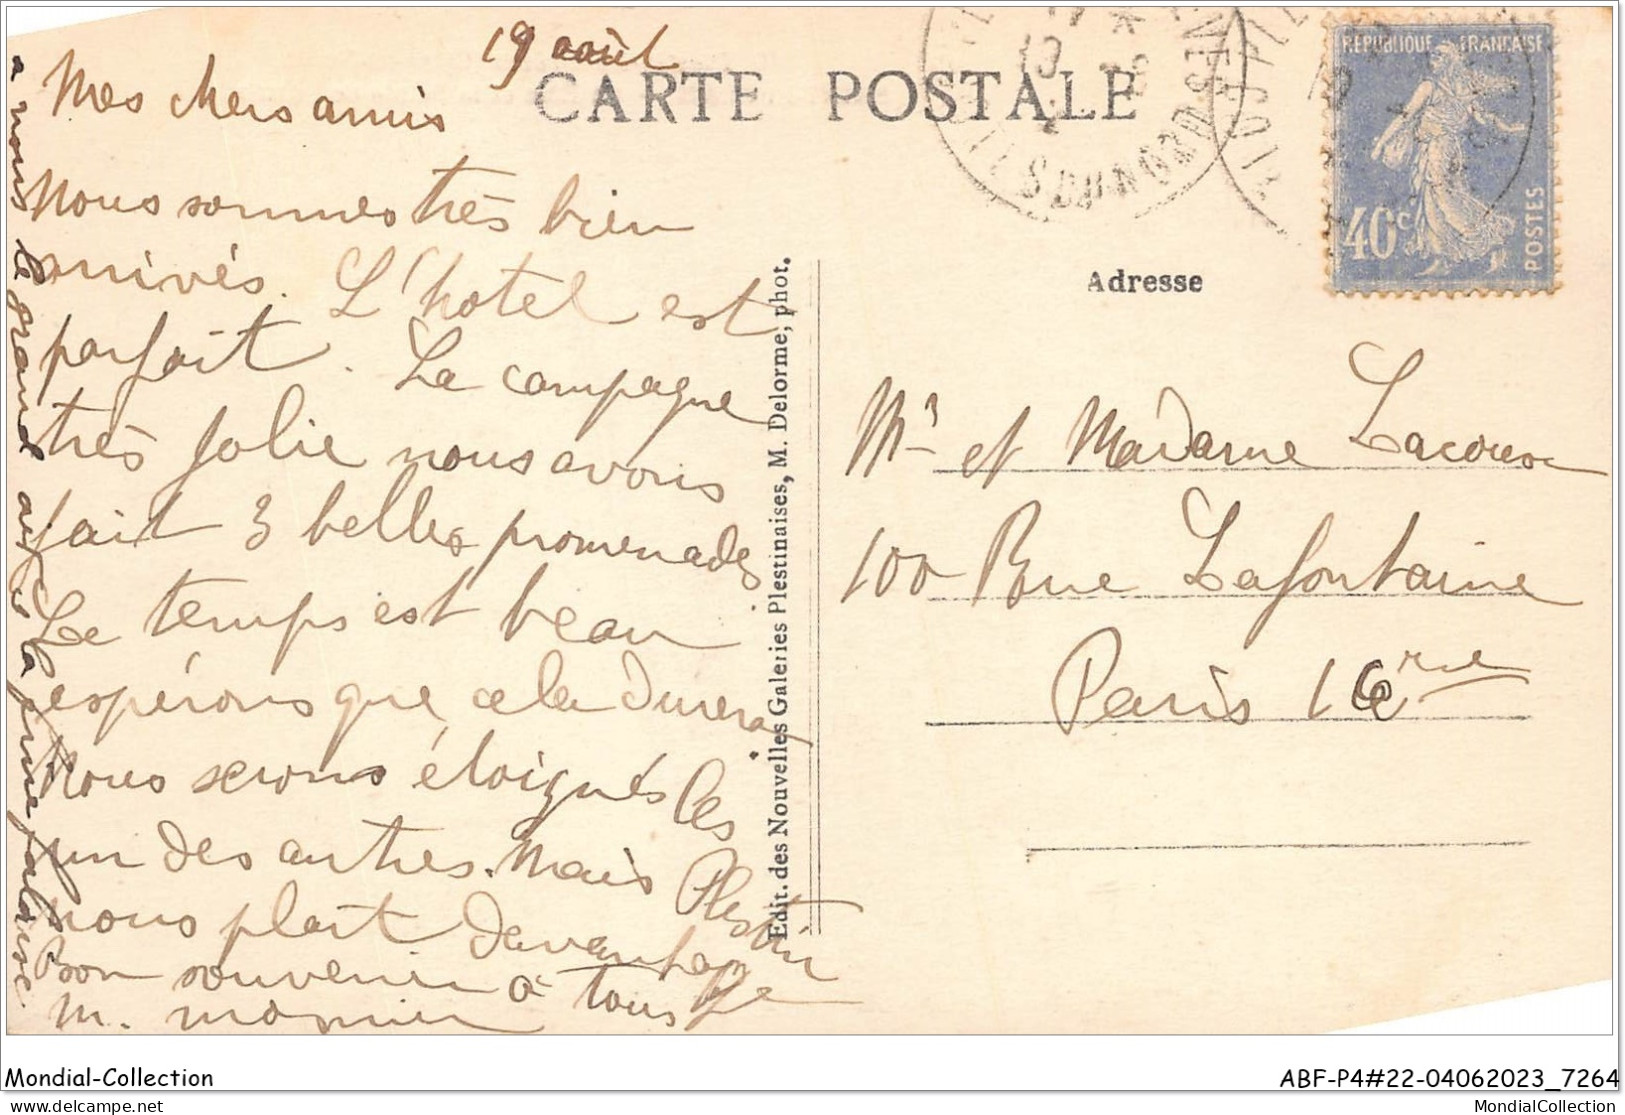 19 août
CARTE POSTALE
RÉPUBLIQUE FRANÇAISE
40c
POSTES
CÔTES DU NORD
Mes chers amis
Nous sommes très bien
arrivés. L'hotel est
parfait. La campagne
très jolie nous avons
fait 3 belles promenades
Le temps est beau
espérons que cela durera
Nous serons éloignés les
un des autres. Mais Plestin
nous plait davantage
Bon souvenir à tous
M. Monnier
a nous le grand air la falaise
Edit. des Nouvelles Galeries Plestinaises, M. Delorme, phot.
Adresse
Mr et Madame Lacourse
100 Rue Lafontaine
Paris 16eme
Mondial-Collection
ABF-P4#22-04062023_7264
delcampe.net
MondialCollection